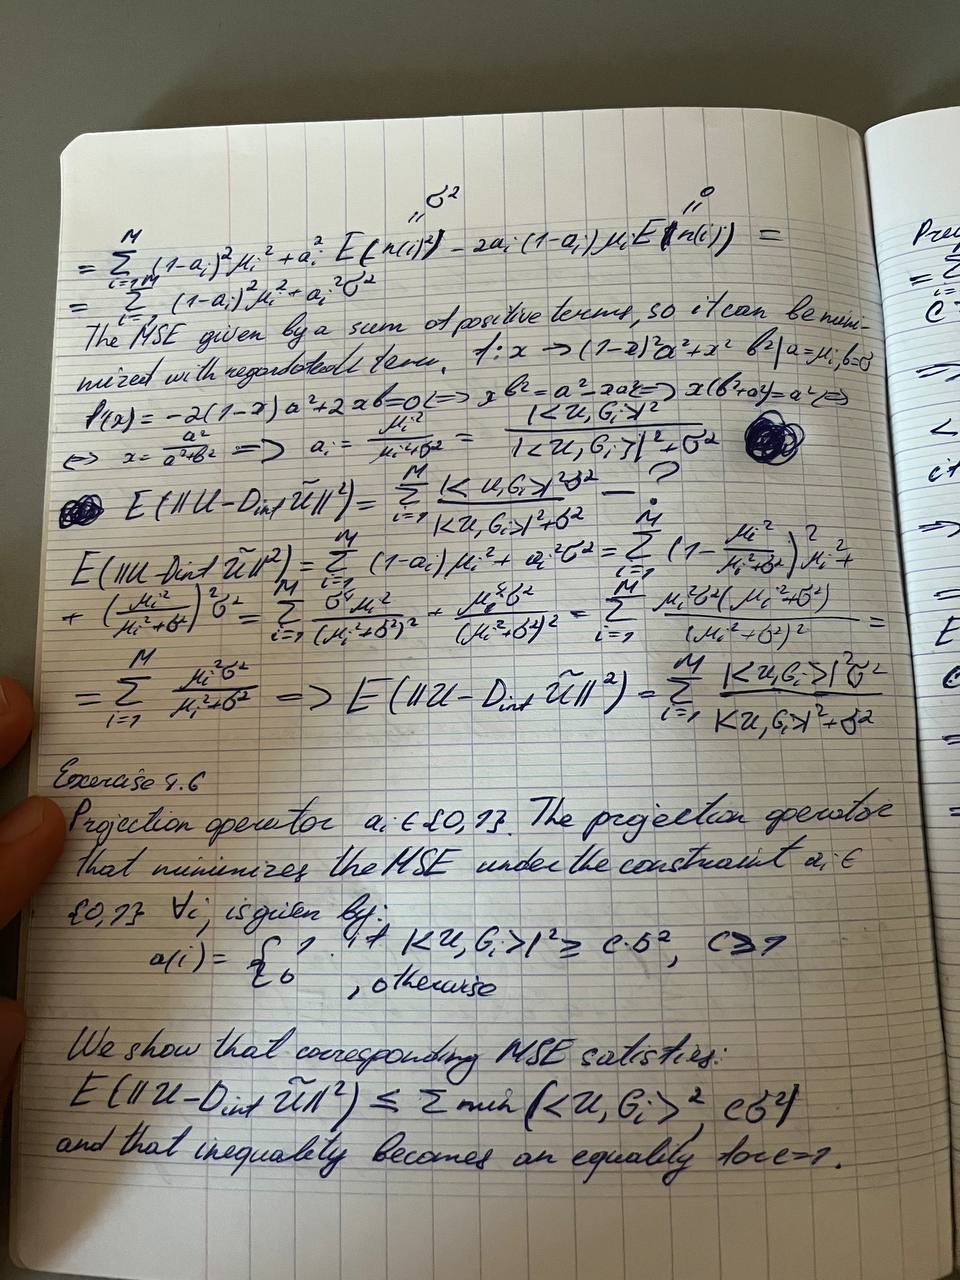 " σ²
" 0
= Σ_{i=1}^{M} (1-a_i)² μ_i² + a_i² E(n(i)²) - 2a_i (1-a_i) μ_i E(n(i)) =
= Σ_{i=1}^{M} (1-a_i)² μ_i² + a_i² σ²
The MSE given by a sum of positive terms, so it can be mini-
mized with term. f: x → (1-x)² a² + x² b² | a=μ_i, b=σ
f'(x) = -2(1-x) a² + 2xb = 0 <=> x b² = a² - xa² <=> x(b²+a²) = a² <=>
<=> x = a²/(a²+b²) => a_i = μ_i²/(μ_i²+σ²) = |<U,G_i>|²/(|<U,G_i>|²+σ²)
E(||U - D_int Ũ||²) = Σ_{i=1}^{M} |<U,G_i>|²σ²/(|<U,G_i>|²+σ²) — ?
E(||U - D_int Ũ||²) = Σ_{i=1}^{M} (1-a_i) μ_i² + a_i² σ² = Σ_{i=1}^{M} (1 - μ_i²/(μ_i²+σ²))² μ_i² +
+ (μ_i²/(μ_i²+σ²))² σ² = Σ_{i=1}^{M} σ⁴μ_i²/(μ_i²+σ²)² + μ_i⁴σ²/(μ_i²+σ²)² = Σ_{i=1}^{M} μ_i²σ²(μ_i²+σ²)/(μ_i²+σ²)² =
= Σ_{i=1}^{M} μ_i²σ²/(μ_i²+σ²) => E(||U - D_int Ũ||²) = Σ_{i=1}^{M} |<U,G_i>|²σ²/(|<U,G_i>|²+σ²)
Exercise .6
Projection operator a_i ∈ {0,1}. The projection operator
that minimizes the MSE under the constraint a_i ∈
{0,1} ∀i, is given by:
a(i) = { 1 if |<U,G_i>|² ≥ c·σ², c≥1
0 , otherwise
We show that corresponding MSE satisfies:
E(||U - D_int Ũ||²) ≤ Σ min(<U,G_i>², cσ²)
and that inequality becomes an equality for c=1.